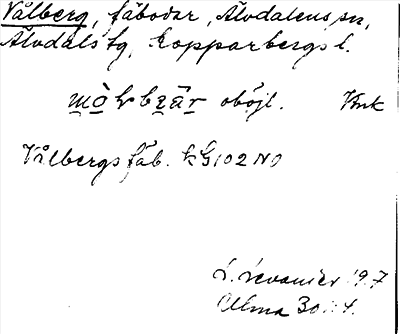 Vålberg, fäbodar, Älvdalens sn,
Älvdals tg, Kopparbergs l.
oböjl.
Vålbergs fäb. kG102 NO
L. Levander 19.7
Ulma 30:1.